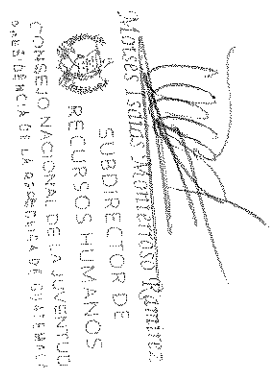 Moises Isaias Montenegro Ramirez
SUBDIRECTOR DE
RECURSOS HUMANOS
CONSEJO NACIONAL DE LA JUVENTUD
PRESIDENCIA DE LA REPUBLICA DE GUATEMALA